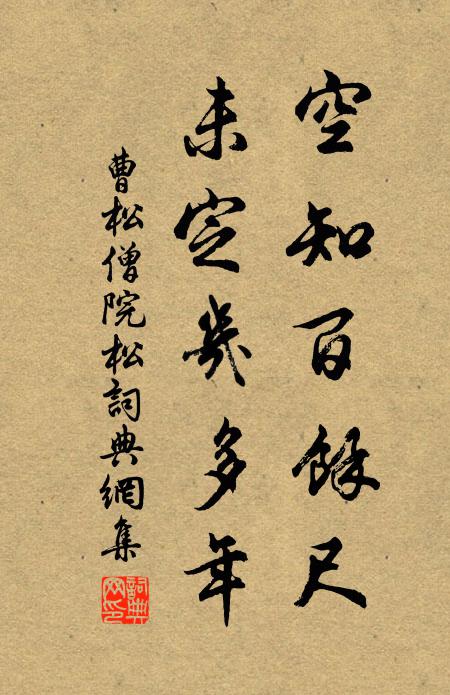 空知百餘尺
未定幾多年
曹松僧院松詞典網集
詞典网印